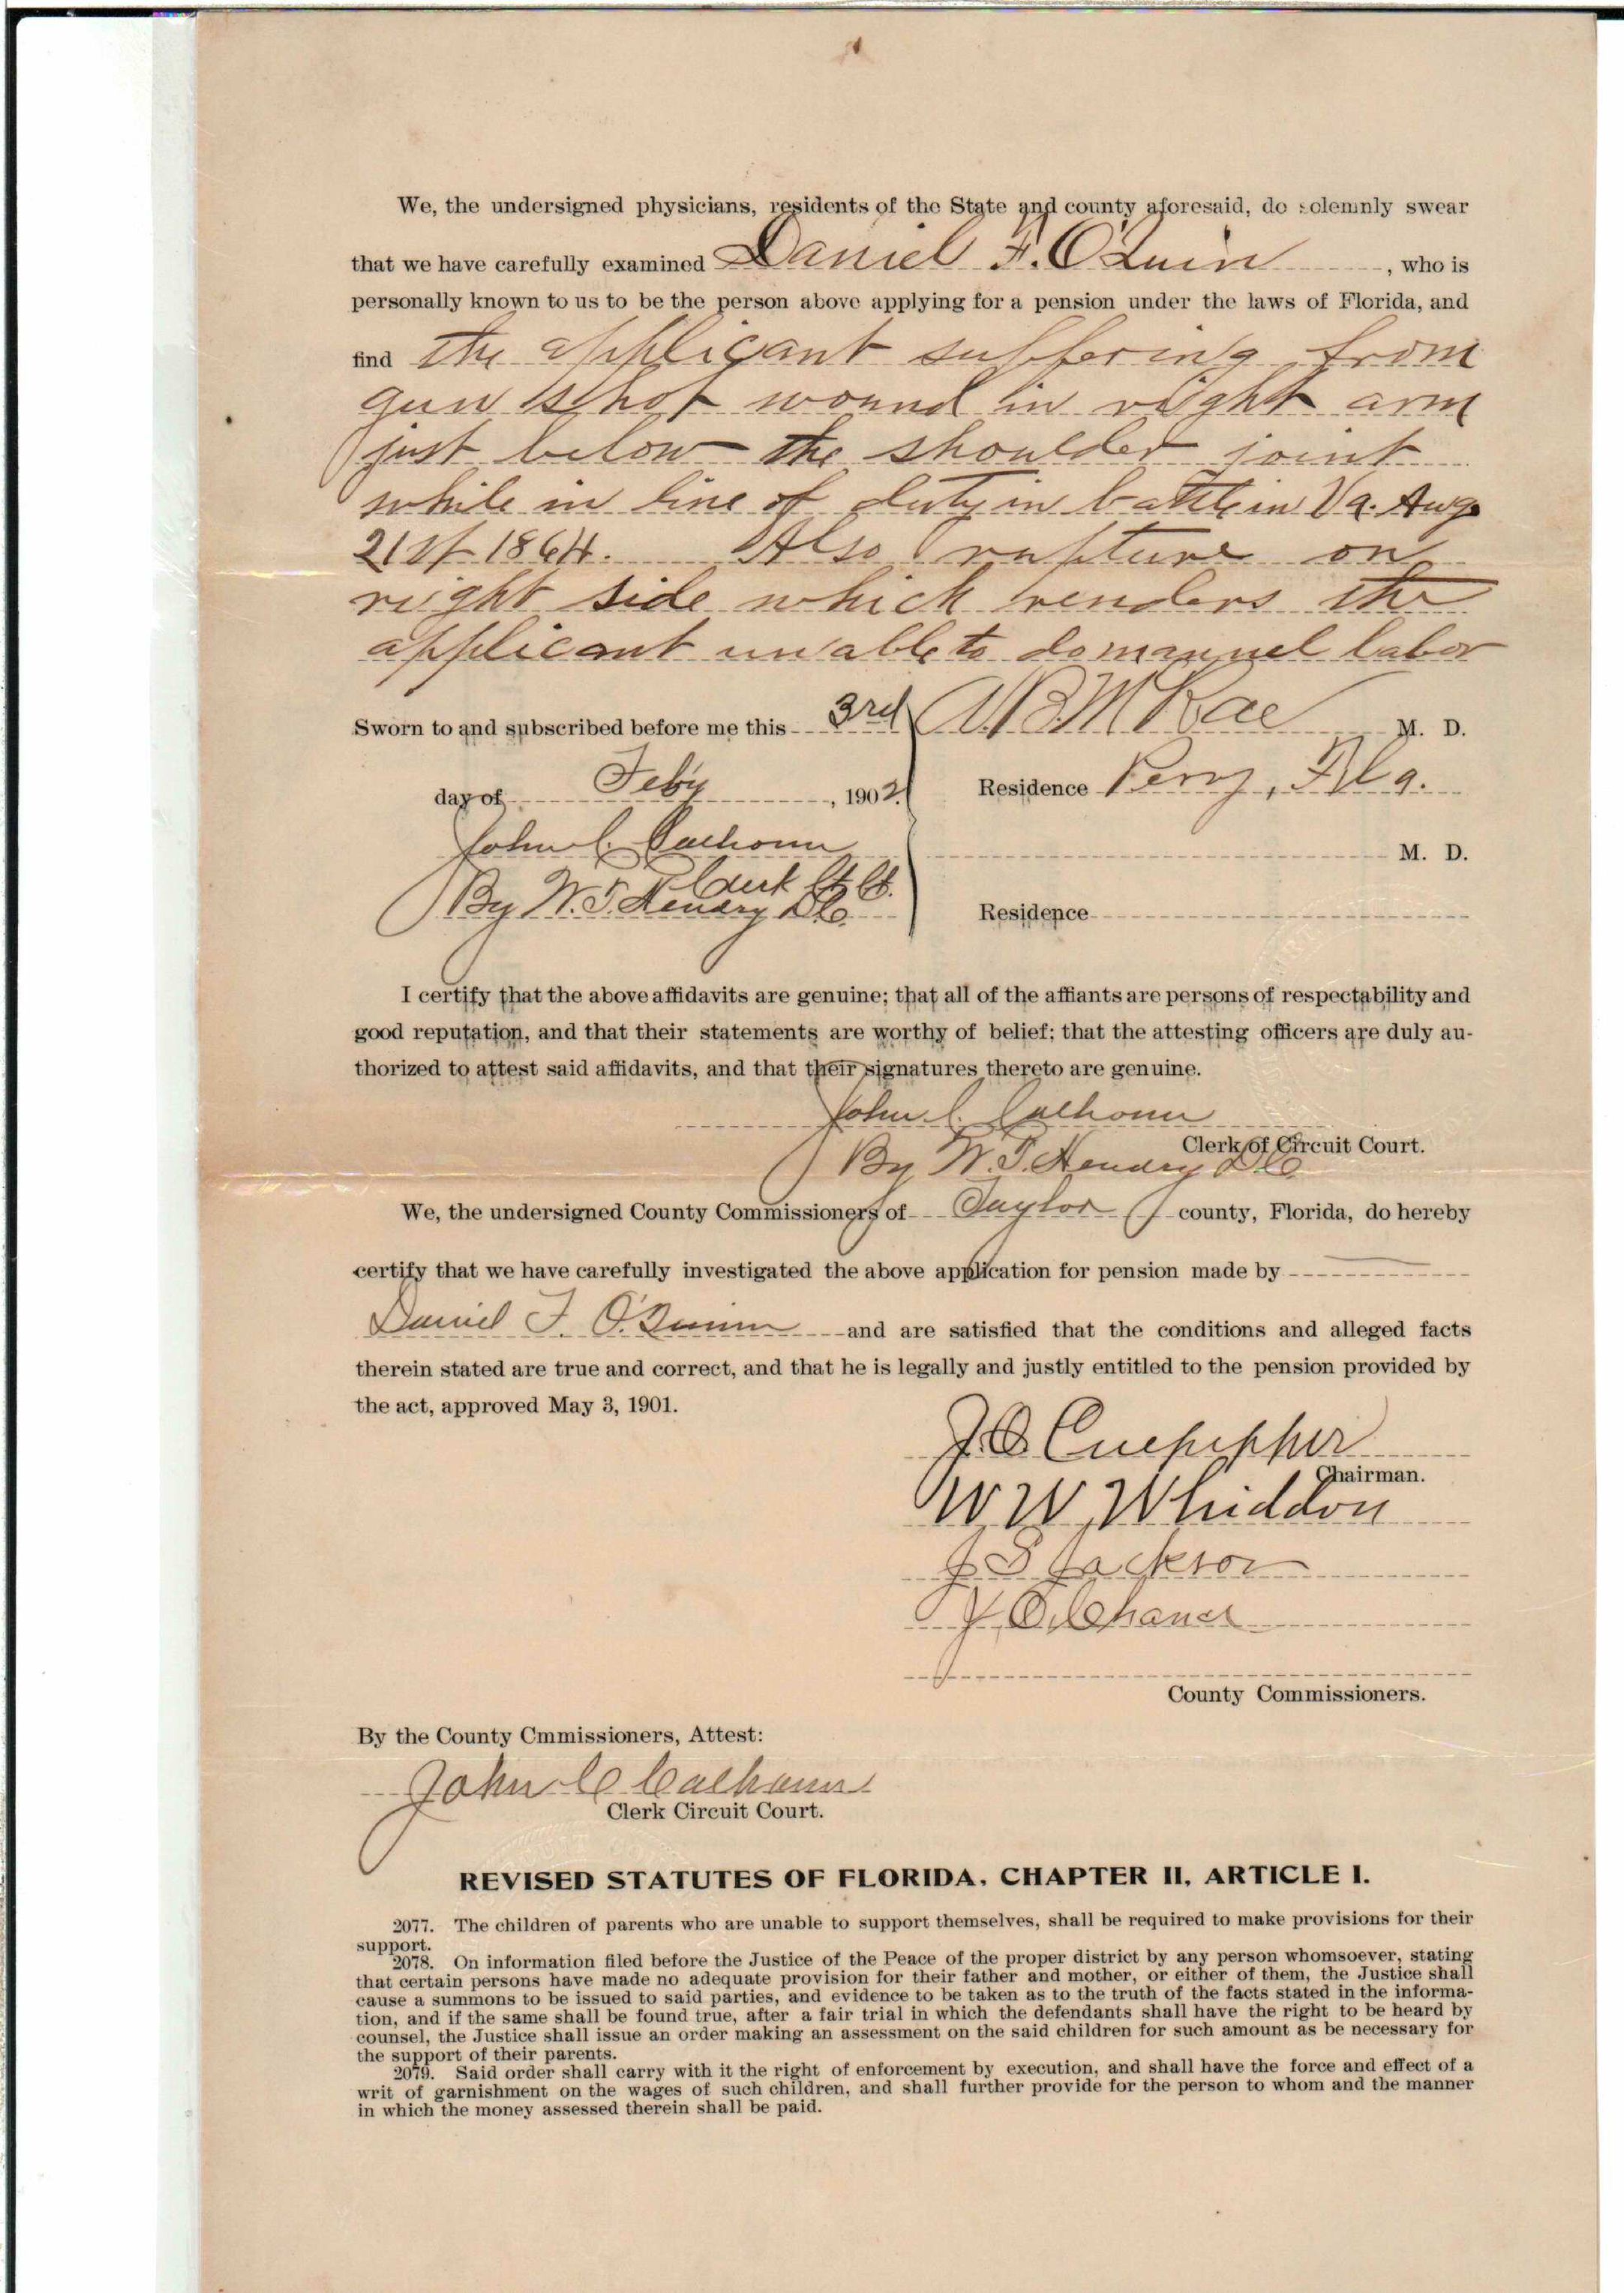 We, the undersigned physicians, residents of the State and county aforesaid, do solemnly swear
that we have carefully examined Daniel F. O'Quin, who is
personally known to us to be the person above applying for a pension under the laws of Florida, and
find the applicant suffering from
gun shot wound in right arm
just below the shoulder joint
while in line of duty in battle in Va. Aug
21st 1864. Also rupture on
right side which renders the
applicant unable to do manuel labor
Sworn to and subscribed before me this 3rd
A. B. McRae M. D.
day of Feby, 1902
Residence Perry, Fla.
John C. Calhoun
M. D.
Clerk Ct Ct.
By W. T. Hendry D.C.
Residence
I certify that the above affidavits are genuine; that all of the affiants are persons of respectability and
good reputation, and that their statements are worthy of belief; that the attesting officers are duly au-
thorized to attest said affidavits, and that their signatures thereto are genuine.
John C. Calhoun
Clerk of Circuit Court.
By W. T. Hendry D.C.
We, the undersigned County Commissioners of Taylor county, Florida, do hereby
certify that we have carefully investigated the above application for pension made by
Daniel F. O'Quinn and are satisfied that the conditions and alleged facts
therein stated are true and correct, and that he is legally and justly entitled to the pension provided by
the act, approved May 3, 1901.
Culpepper
Chairman.
W W Whiddon
J S Jackson
County Commissioners.
By the County Cmmissioners, Attest:
John C Calhoun
Clerk Circuit Court.
REVISED STATUTES OF FLORIDA. CHAPTER II, ARTICLE I.
2077. The children of parents who are unable to support themselves, shall be required to make provisions for their
support.
2078. On information filed before the Justice of the Peace of the proper district by any person whomsoever, stating
that certain persons have made no adequate provision for their father and mother, or either of them, the Justice shall
cause a summons to be issued to said parties, and evidence to be taken as to the truth of the facts stated in the informa-
tion, and if the same shall be found true, after a fair trial in which the defendants shall have the right to be heard by
counsel, the Justice shall issue an order making an assessment on the said children for such amount as be necessary for
the support of their parents.
2079. Said order shall carry with it the right of enforcement by execution, and shall have the force and effect of a
writ of garnishment on the wages of such children, and shall further provide for the person to whom and the manner
in which the money assessed therein shall be paid.